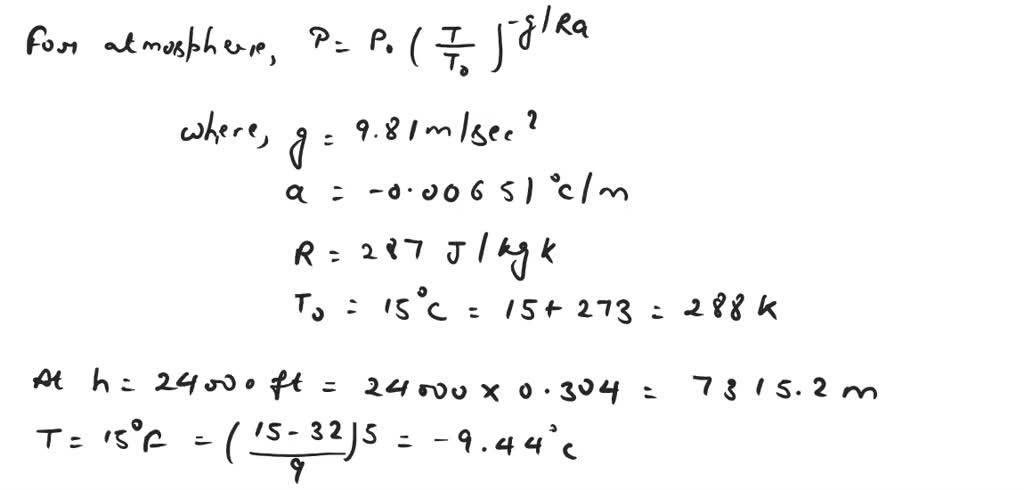 For atmosphere, P = P₀ (T/T₀)^-g/Ra
where, g = 9.81 m/sec²
a = -0.00651 °c/m
R = 287 J/kg k
T₀ = 15°C = 15 + 273 = 288 k
At h = 24000 ft = 24000 × 0.304 = 7315.2 m
T = 15°F = (15-32/9)5 = -9.44°c